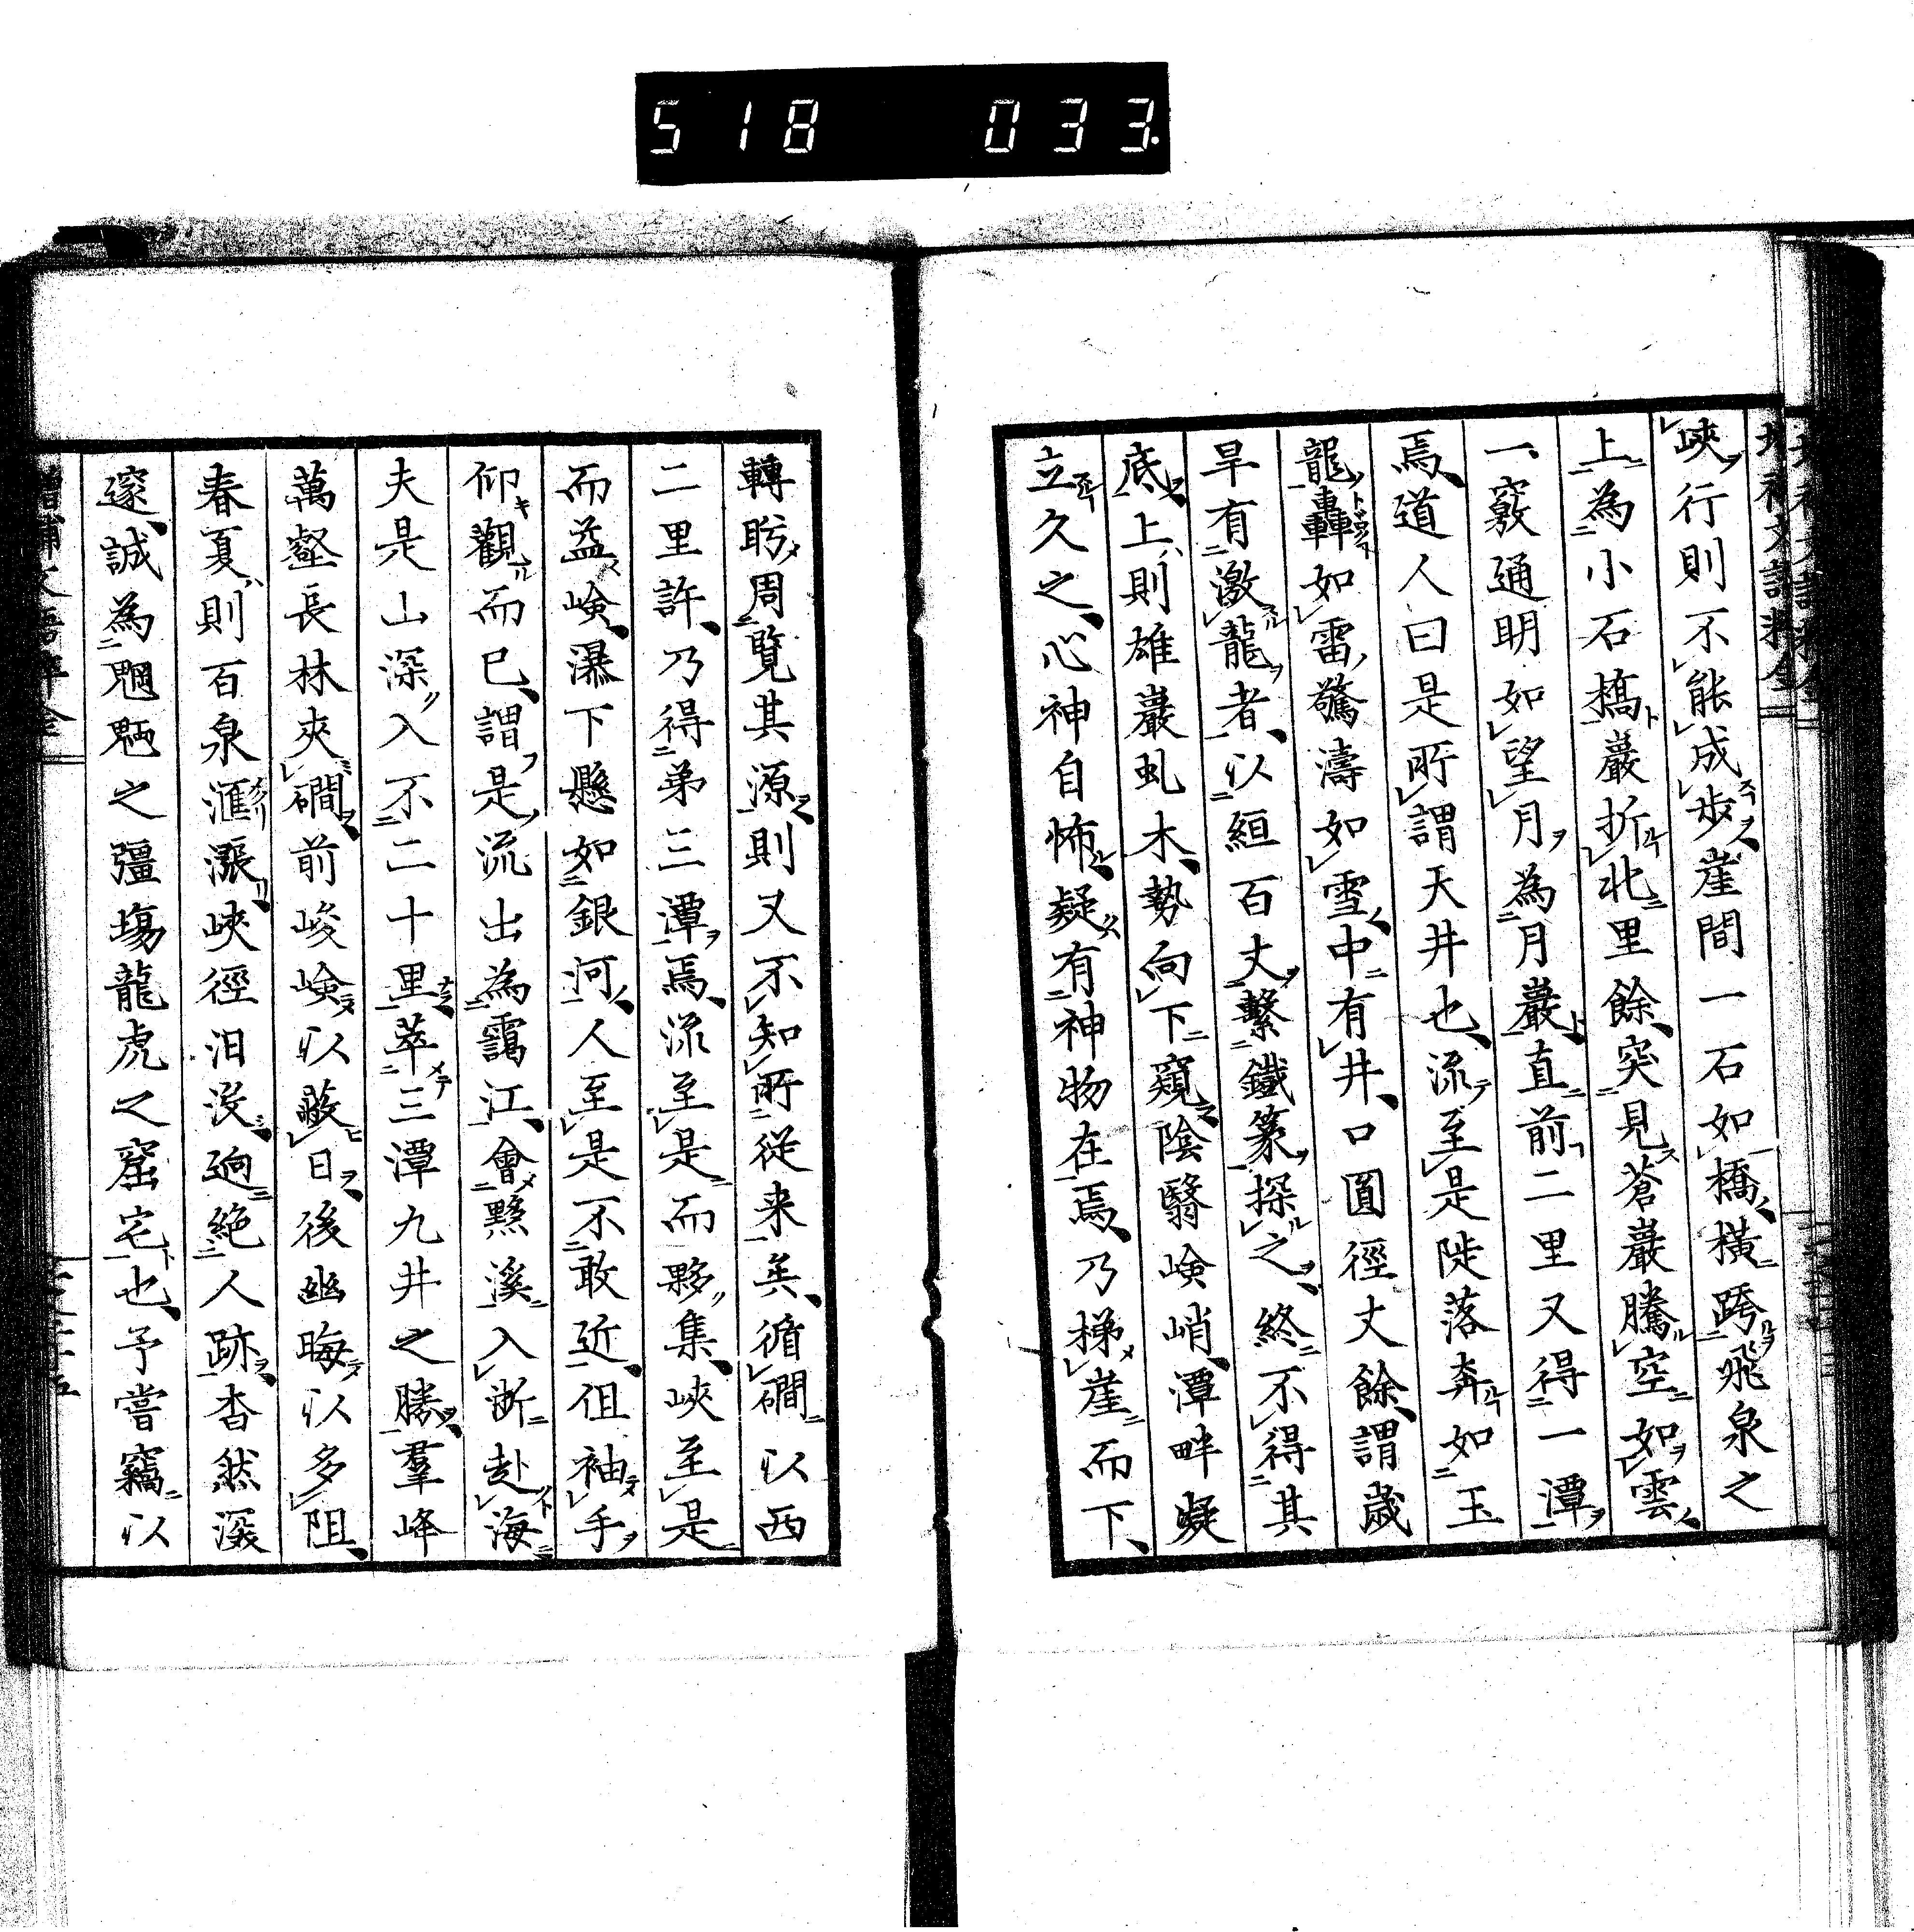 518 033
峽行則不能成步崖間一石如橋橫跨飛泉之
上為小石橋巖折北里餘突見蒼巖騰空如雲
一竅通明如望月為月巖直前二里又得一潭
焉道人曰是所謂天井也流至是陡落奔如玉
龍轟如雷驚濤如雪中有井口圓徑丈餘謂歲
旱有激龍者以絙百丈繫鐵篆探之終不得其
底上則雄巖虬木勢向下窺陰翳嶮峭潭畔凝
立久之心神自怖疑有神物在焉乃梯崖而下
轉眄周覽其源則又不知所從来矣循磵以西
二里許乃得弟三潭焉流至是而夥集峽至是
而益嶮瀑下懸如銀河人至是不敢近但袖手
仰觀而已謂是流出為靄江會黟溪入浙赴海
夫是山深入不二十里萃三潭九井之勝羣峰
萬壑長林夾磵前峻嶮以蔽日後幽晦以多阻
春夏則百泉滙漲峽徑汩没逈絶人跡杳然深
邃誠為魍魎之彊場龍虎之窟宅也予嘗竊以